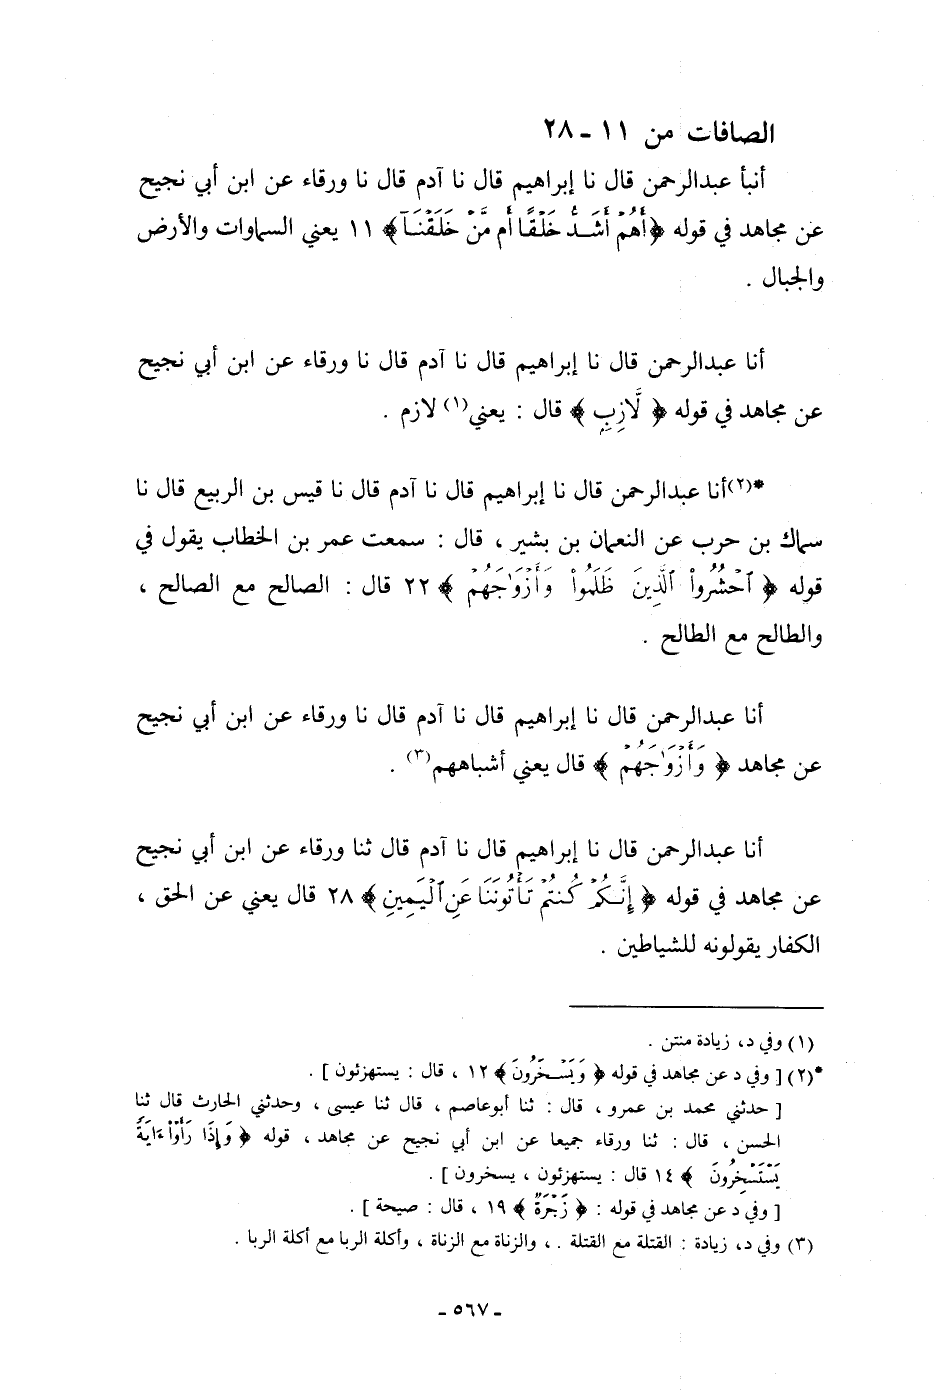 الصافات من ١١ - ٢٨
أنبأ عبدالرحمن قال نا إبراهيم قال نا آدم قال نا ورقاء عن ابن أبي نجيح
عن مجاهد في قوله ﴿أَهُمْ أَشَدُّ خَلْقًا أَم مَّنْ خَلَقْنَآ﴾ ١١ يعني السماوات والأرض
والجبال .
أنا عبدالرحمن قال نا إبراهيم قال نا آدم قال نا ورقاء عن ابن أبي نجيح
عن مجاهد في قوله ﴿ لَّازِبٍ ﴾ قال : يعني(١) لازم .
*(٢)أنا عبدالرحمن قال نا إبراهيم قال نا آدم قال نا قيس بن الربيع قال نا
سماك بن حرب عن النعمان بن بشير ، قال : سمعت عمر بن الخطاب يقول في
قوله ﴿ ٱحْشُرُوا۟ ٱلَّذِينَ ظَلَمُوا۟ وَأَزْوَٰجَهُمْ ﴾ ٢٢ قال : الصالح مع الصالح ،
والطالح مع الطالح .
أنا عبدالرحمن قال نا إبراهيم قال نا آدم قال نا ورقاء عن ابن أبي نجيح
عن مجاهد ﴿ وَأَزْوَٰجَهُمْ ﴾ قال يعني أشباههم(٣) .
أنا عبدالرحمن قال نا إبراهيم قال نا آدم قال ثنا ورقاء عن ابن أبي نجيح
عن مجاهد في قوله ﴿ إِنَّكُمْ كُنتُمْ تَأْتُونَنَا عَنِ ٱلْيَمِينِ ﴾ ٢٨ قال يعني عن الحق ،
الكفار يقولونه للشياطين .
(١) وفي د، زيادة منتن .
*(٢) [ وفي د عن مجاهد في قوله ﴿ وَيَسْخَرُونَ ﴾ ١٢ ، قال : يستهزئون ] .
[ حدثني محمد بن عمرو ، قال : ثنا أبوعاصم ، قال ثنا عيسى ، وحدثني الحارث قال ثنا
الحسن ، قال : ثنا ورقاء جميعا عن ابن أبي نجيح عن مجاهد ، قوله ﴿ وَإِذَا رَأَوْا۟ ءَايَةً
يَسْتَسْخِرُونَ ﴾ ١٤ قال : يستهزئون ، يسخرون ] .
[ وفي د عن مجاهد في قوله : ﴿ زَجْرَةٌ ﴾ ١٩ ، قال : صيحة ] .
(٣) وفي د، زيادة : القتلة مع القتلة . ، والزناة مع الزناة ، وأكلة الربا مع أكلة الربا .
- ٥٦٧ -